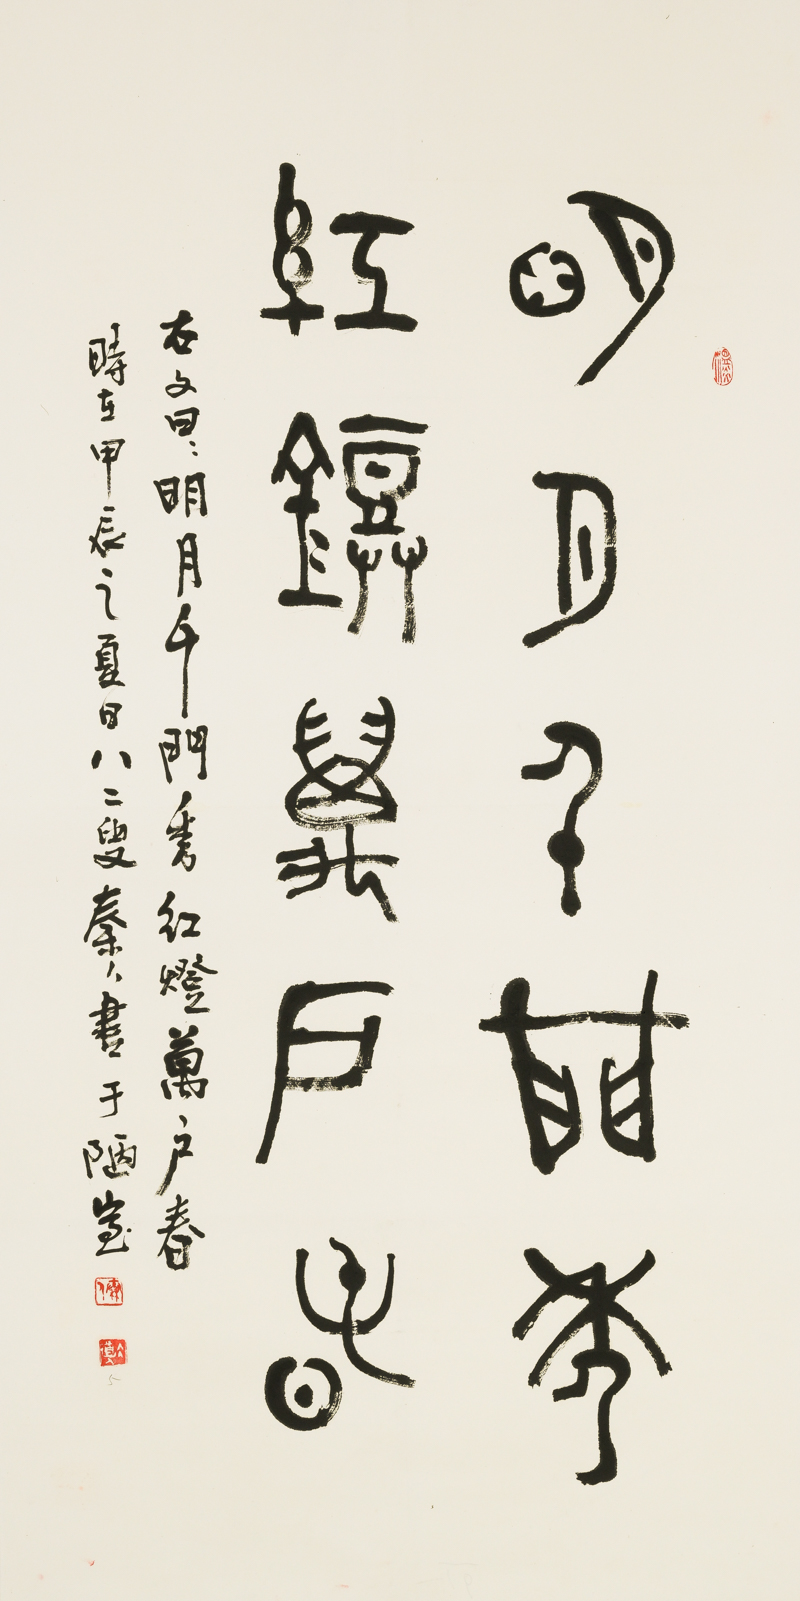 明月千門秀
紅鐙萬戶春
右文曰：明月千門秀紅燈萬戶春
時在甲辰之夏日八二叟秦人書于陋室